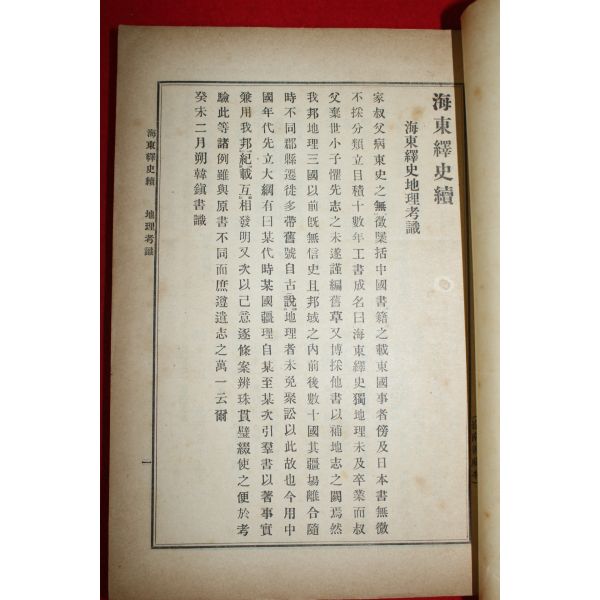 海東繹史續
海東繹史地理考識
家叔父病東史之無徵櫽括中國書籍之載東國事者傍及日本書無微
不採分類立目積十數年工書成名曰海東繹史獨地理未及卒業而叔
父棄世小子懼先志之未遂謹編舊草又博採他書以補地志之闕焉然
我邦地理三國以前旣無信史且邦域之內前後數十國其疆場離合隨
時不同郡縣遷徙多帶舊號自古說地理者未免聚訟以此故也今用中
國年代先立大綱有曰某代時某國疆理自某至某次引羣書以著事實
兼用我邦紀載互相發明又次以己意逐條案辨珠貫璧綴使之便於考
驗此等諸例雖與原書不同而庶遵遺志之萬一云爾
癸未二月朔韓鎭書識
海東繹史續 地理考識
一